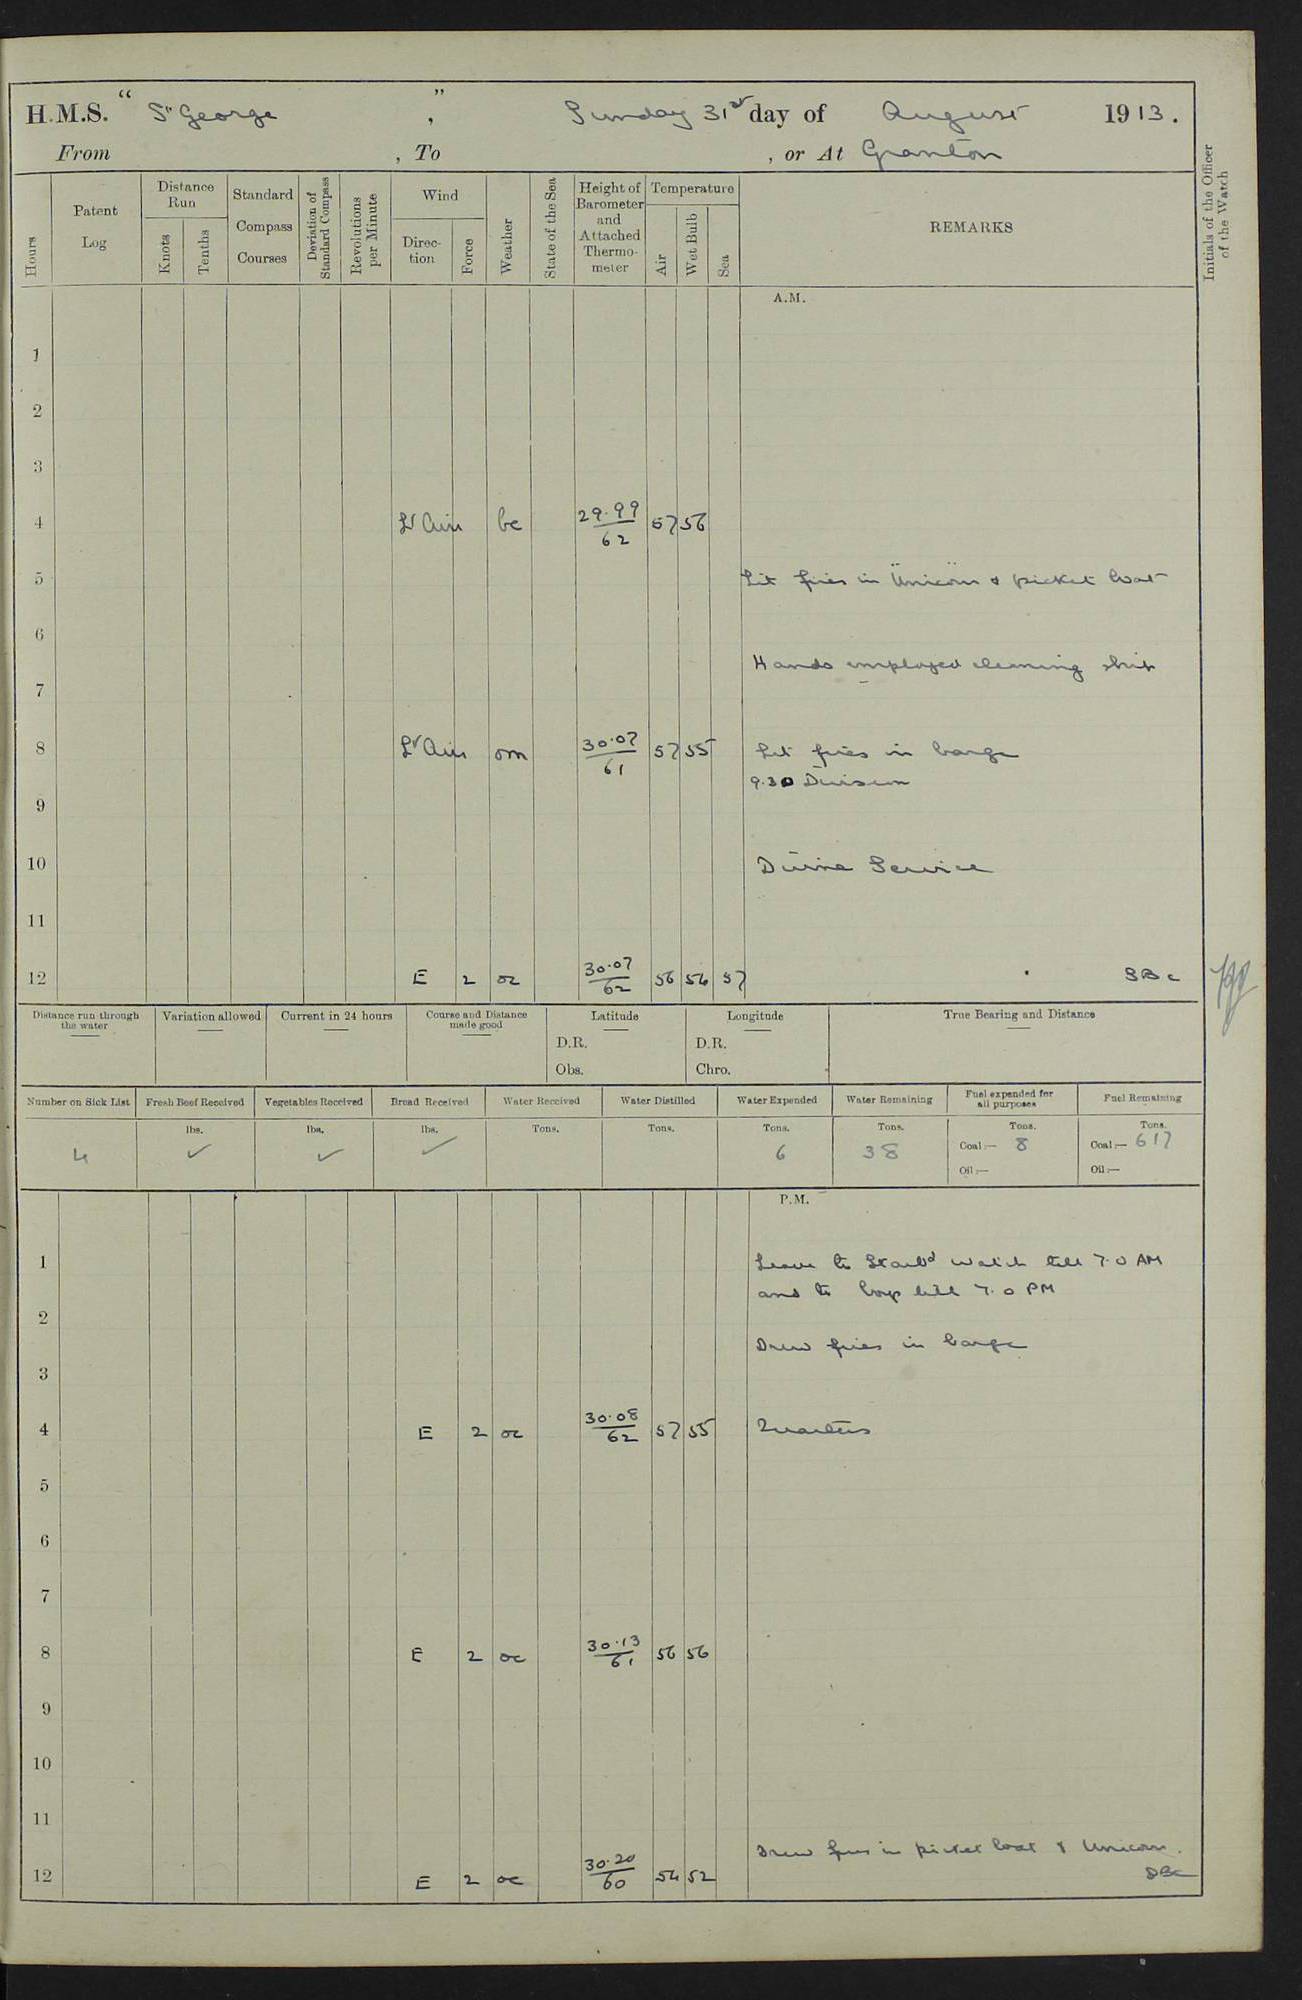 H.M.S. " St George ", Sunday 31st day of August 1913.
From , To , or At Granton
Hours
Patent Log
Distance Run
Knots
Tenths
Standard Compass Courses
Deviation of Standard Compass
Revolutions per Minute
Wind
Direc-tion
Force
Weather
State of the Sea
Height of Barometer and Attached Thermo-meter
Temperature
Air
Wet Bulb
Sea
REMARKS
Initials of the Officer of the Watch
A.M.
1
2
3
4 Lt Airs bc 29.99/62 57 56
5 Lit fires in "Unicorn" & picket boat
6
Hands employed cleaning ship
7
8 Lt Airs om 30.07/61 57 55 Lit fires in barge
9.30 Division
9
10 Divine Service
11
12 E 2 oc 30.07/62 56 54 57 SBC
Distance run through the water
Variation allowed
Current in 24 hours
Course and Distance made good
Latitude
D.R.
Obs.
Longitude
D.R.
Chro.
True Bearing and Distance
Number on Sick List
Fresh Beef Received
Vegetables Received
Bread Received
Water Received
Water Distilled
Water Expended
Water Remaining
Fuel expended for all purposes
Fuel Remaining
lbs. lbs. lbs. Tons. Tons. Tons. Tons. Tons. Tons.
4 ✓ ✓ ✓ 6 38 Coal:— 8 Coal:— 617
Oil:— Oil:—
P.M.
1 Leave to Starbd Watch till 7.0 AM
and to boys till 7.0 PM
2
Drew fires in barge
3
4 E 2 oc 30.08/62 57 55 Quarters
5
6
7
8 E 2 oc 30.13/61 56 56
9
10
11
Drew fires in picket boat & Unicorn.
12 E 2 oc 30.20/60 54 52 SBC